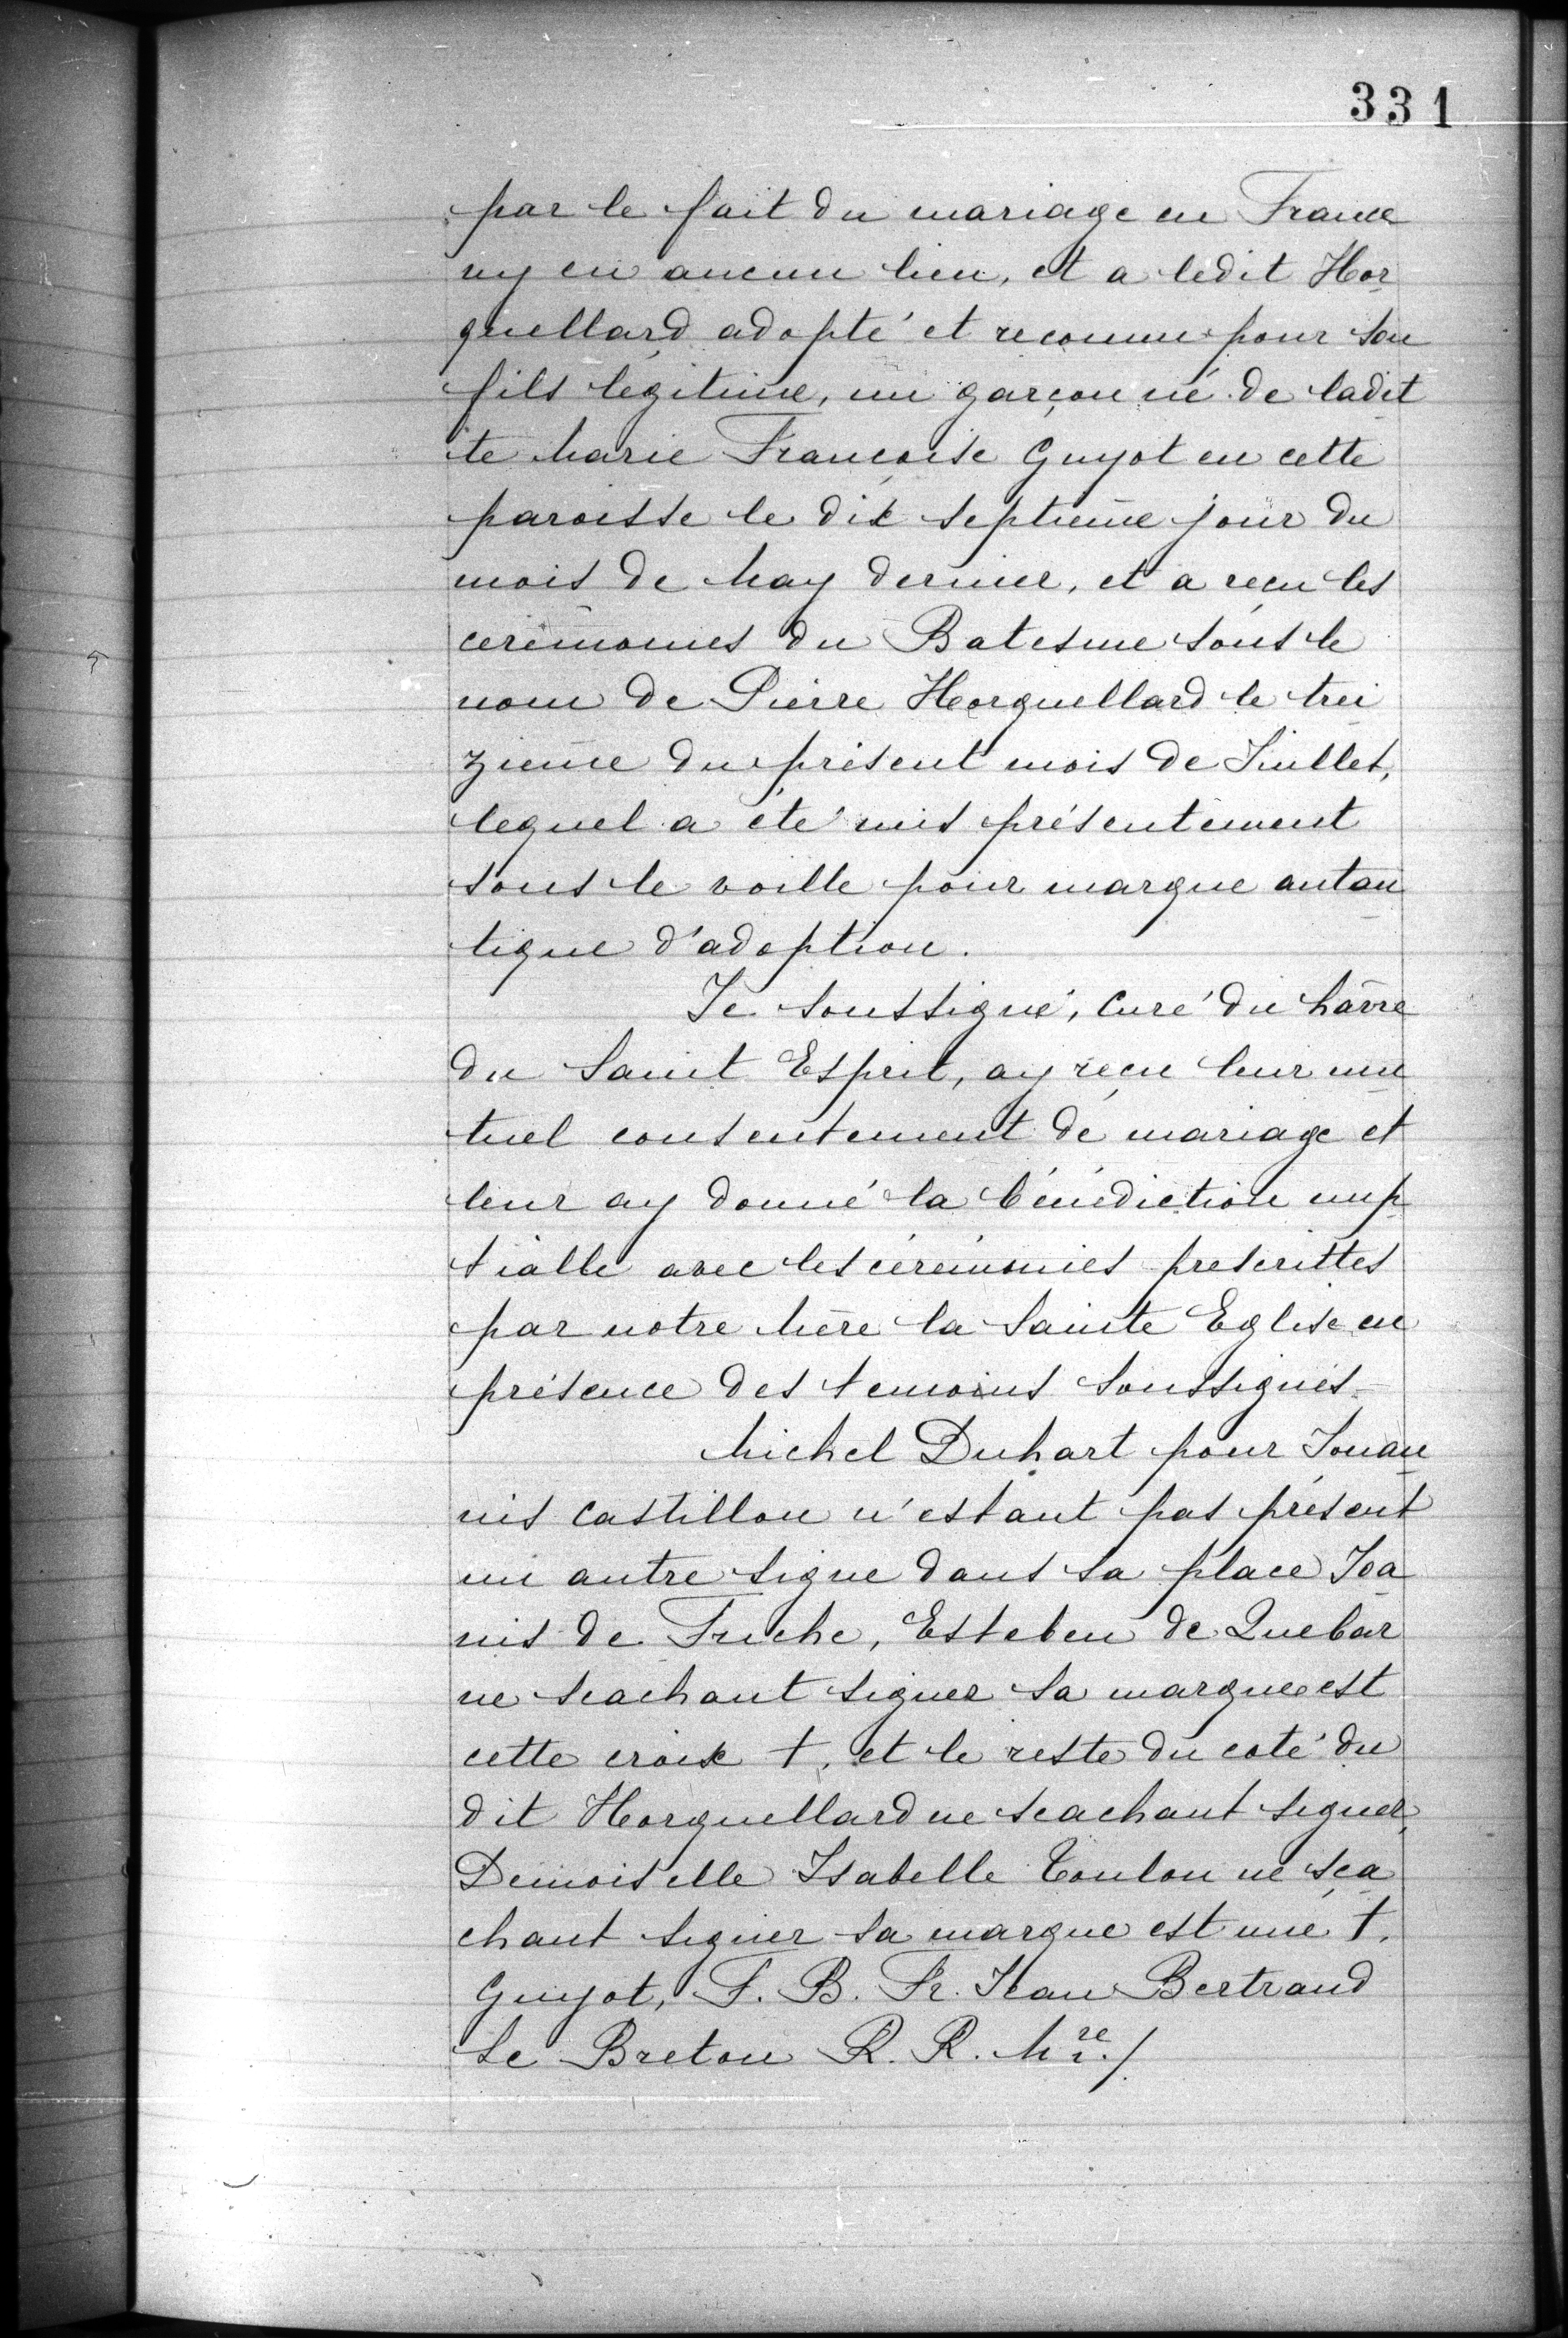 331
par le fait du mariage en France
ny en aucun lieu, et a ledit Hor
guellard adopté et reconnu pour son
fils légitime, un garçon né de ladit
te Marie Françoise Guyot en cette
paroisse le dix septieme jour du
mois de May dernier, et a reçu les
ceremonies du Batesme sous le
nom de Pierre Horguellard le trei
zieme du présent mois de Juillet,
lequel a été mis présentement
sous le voille pour marque autan
tique d'adoption.
Je soussigné, Curé du hâvre
du Saint Esprit, ay reçu leur mu
tuel consentement de mariage et
leur ay donné la bénédiction nup
tialle avec les cérémonies prescrittes
par notre Mère la Sainte Eglise en
présence des temoins soussignés
Michel Duhart pour Jouan
nis Castillon n'estant pas présent
un autre signe dans sa place Joa
nis de Fuche, Esteben de Quebar
ne scachant signer sa marque est
cette croix †, et le reste du coté du
dit Horguellard ne scachant signer,
Demoiselle Isabelle Toulon ne sça
chant signer sa marque est une †.
Guyot, F. B. Fr. Jean Bertrand
Le Breton R. R. Mre./.